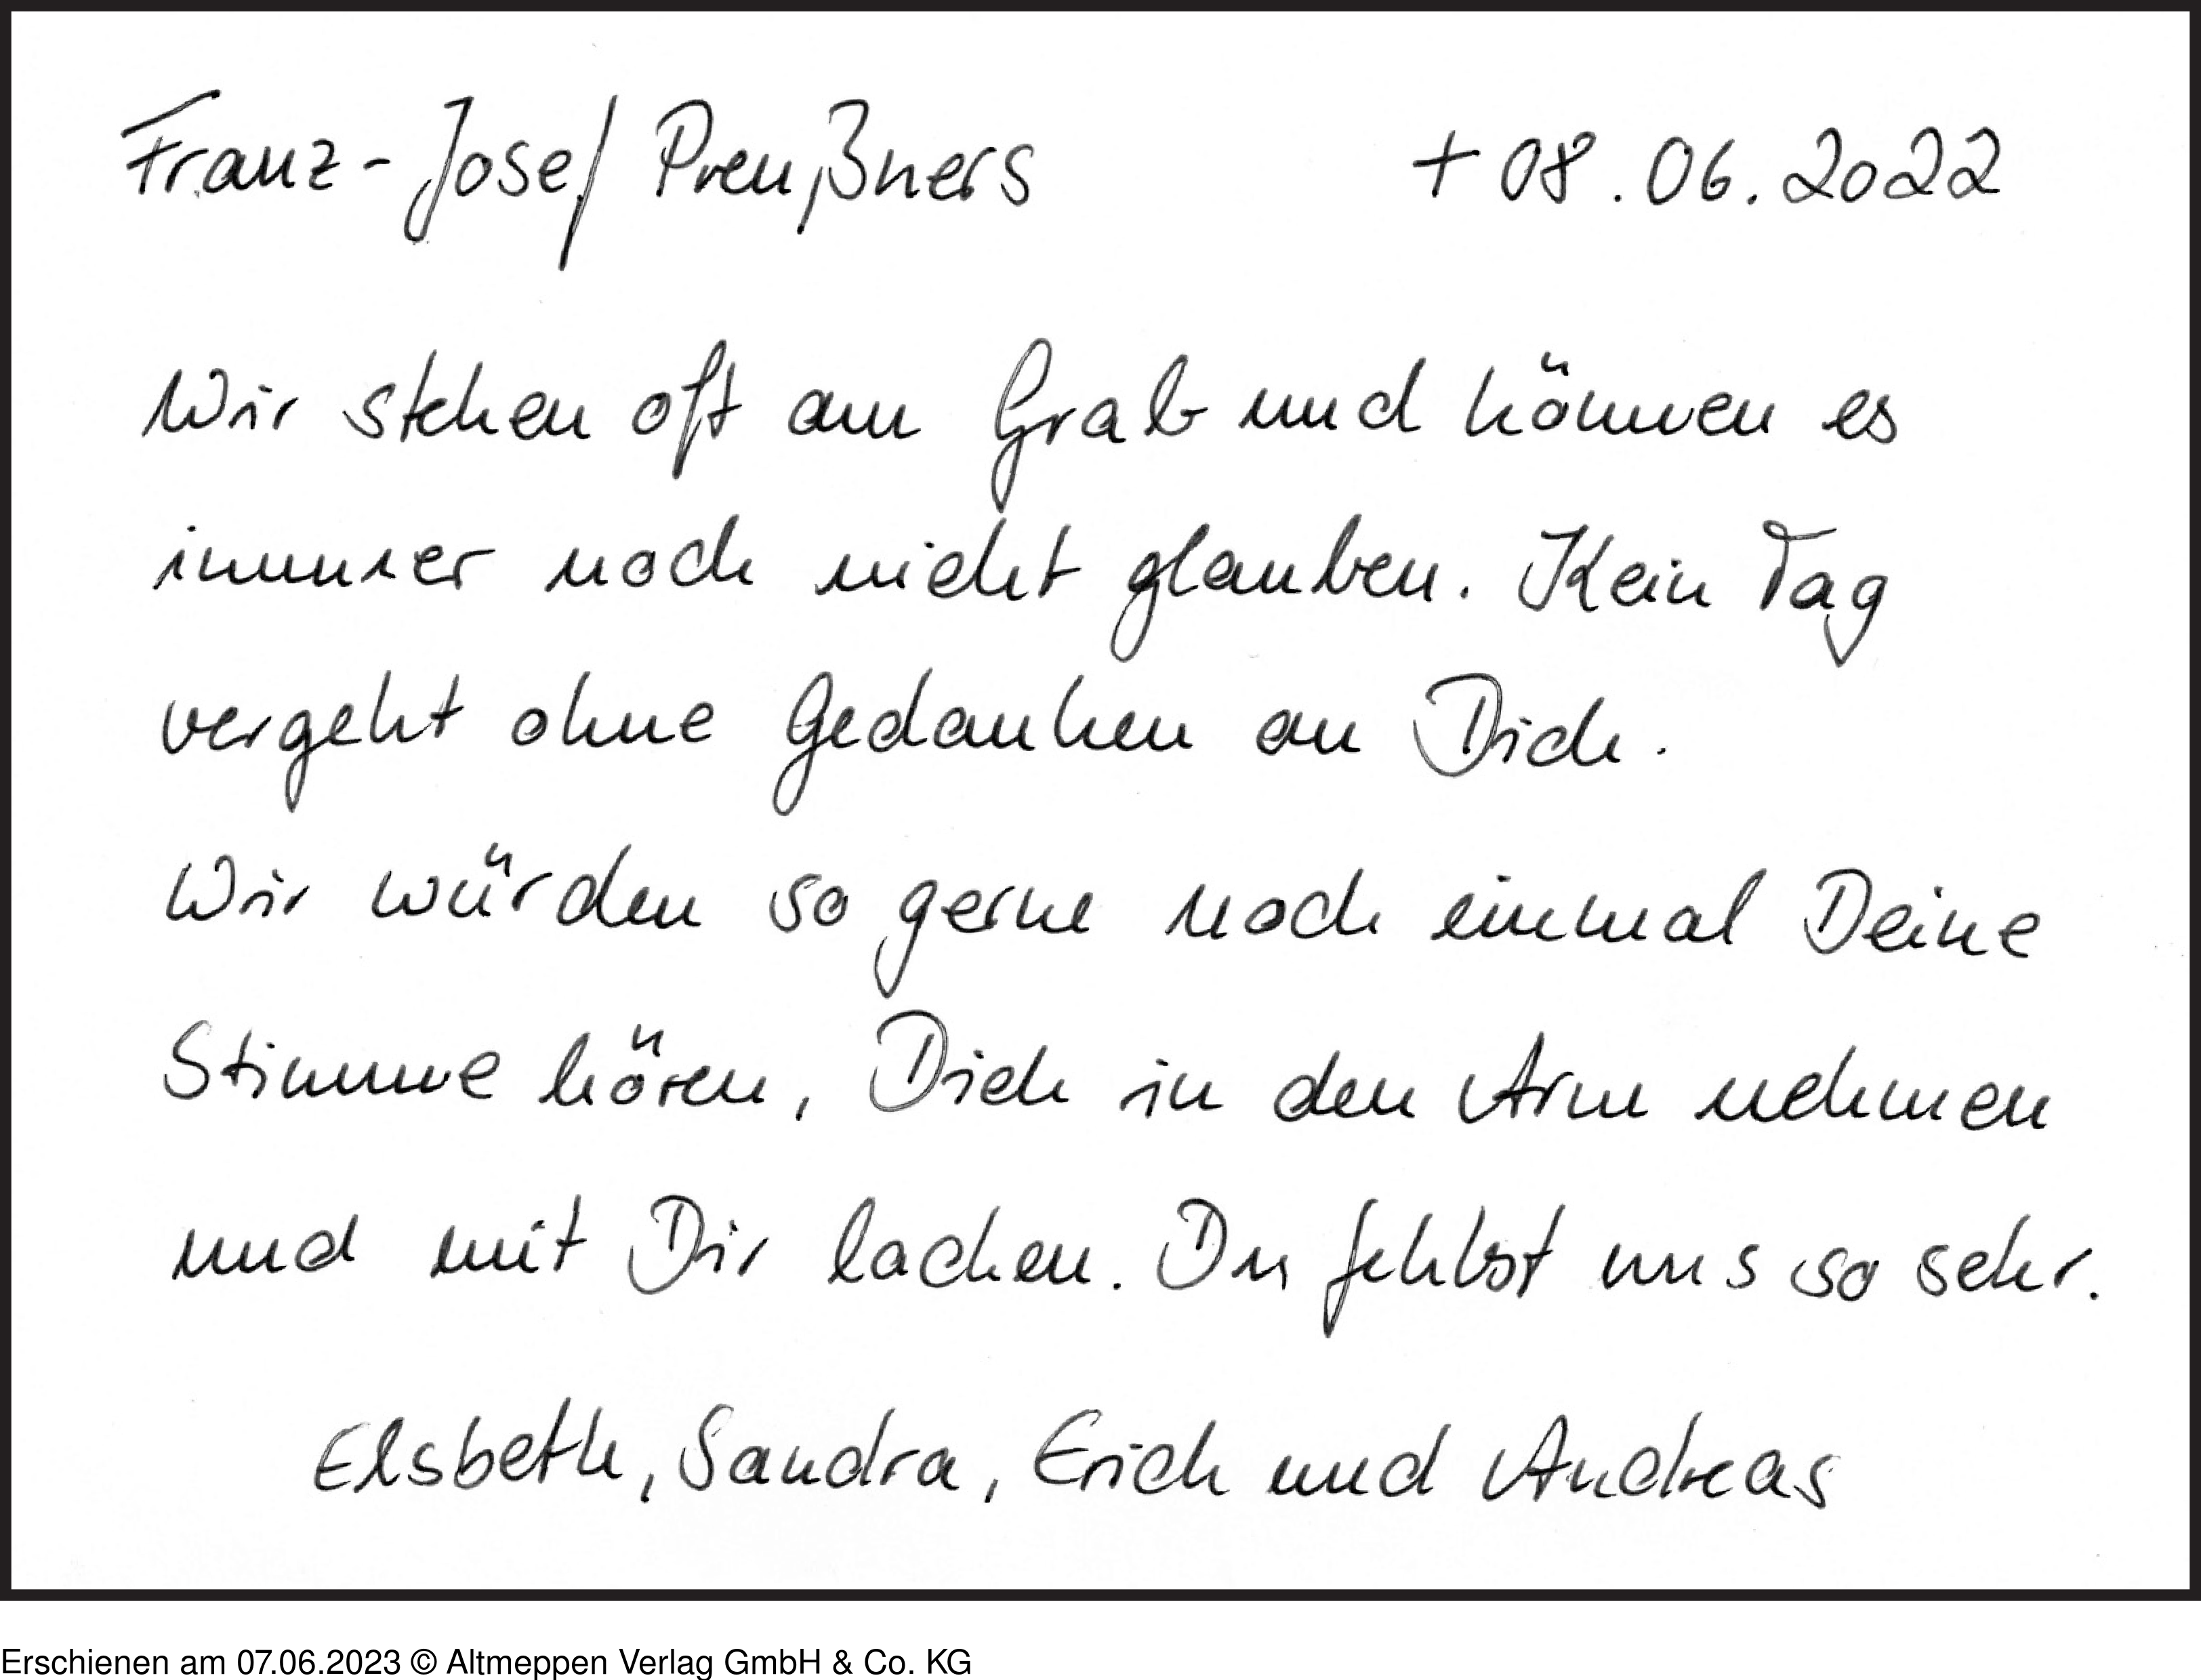 Franz-Josef Preußners + 08.06.2022
Wir stehen oft am Grab und können es
immer noch nicht glauben. Kein Tag
vergeht ohne Gedanken an Dich.
Wir würden so gerne noch einmal Deine
Stimme hören, Dich in den Arm nehmen
und mit Dir lachen. Du fehlst uns so sehr.
Elsbeth, Sandra, Erich und Andreas
Erschienen am 07.06.2023 © Altmeppen Verlag GmbH & Co. KG